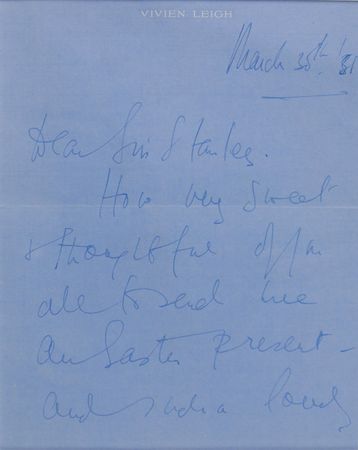 VIVIEN LEIGH
March 30th '51
Dear Sir Stanley.
How very sweet
& thoughtful of you
all to send me
an Easter present -
and such a lovely